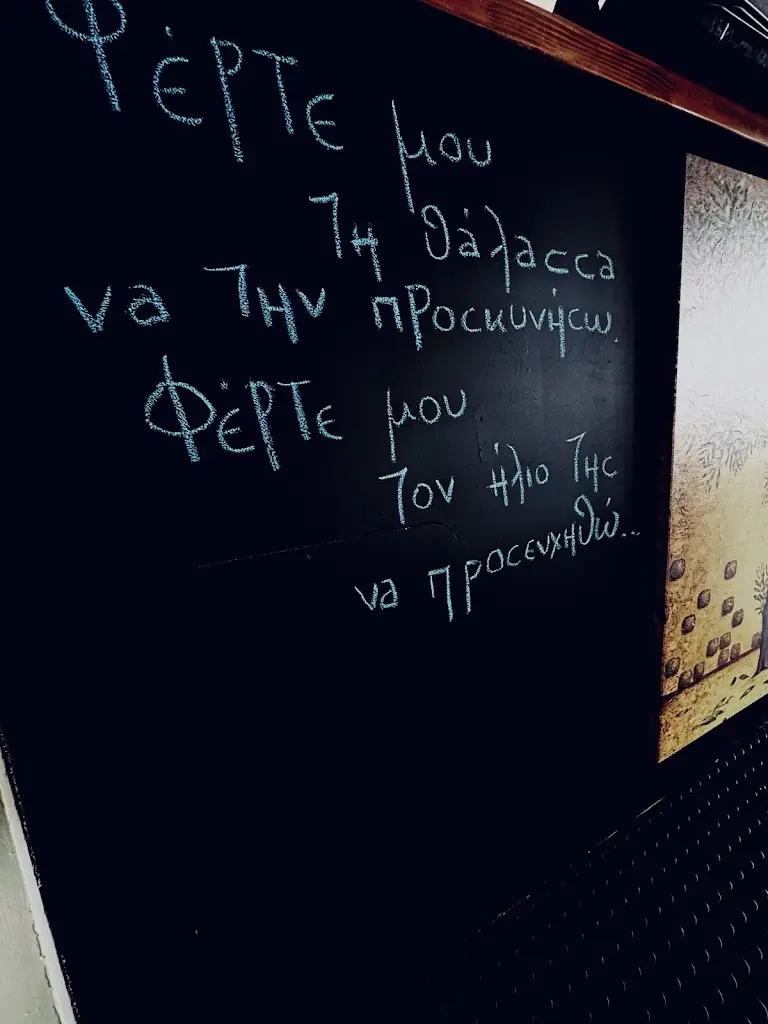 Φέρτε μου
τη θάλασσα
να την προσκυνήσω.
Φέρτε μου
τον ήλιο της
να προσευχηθώ...